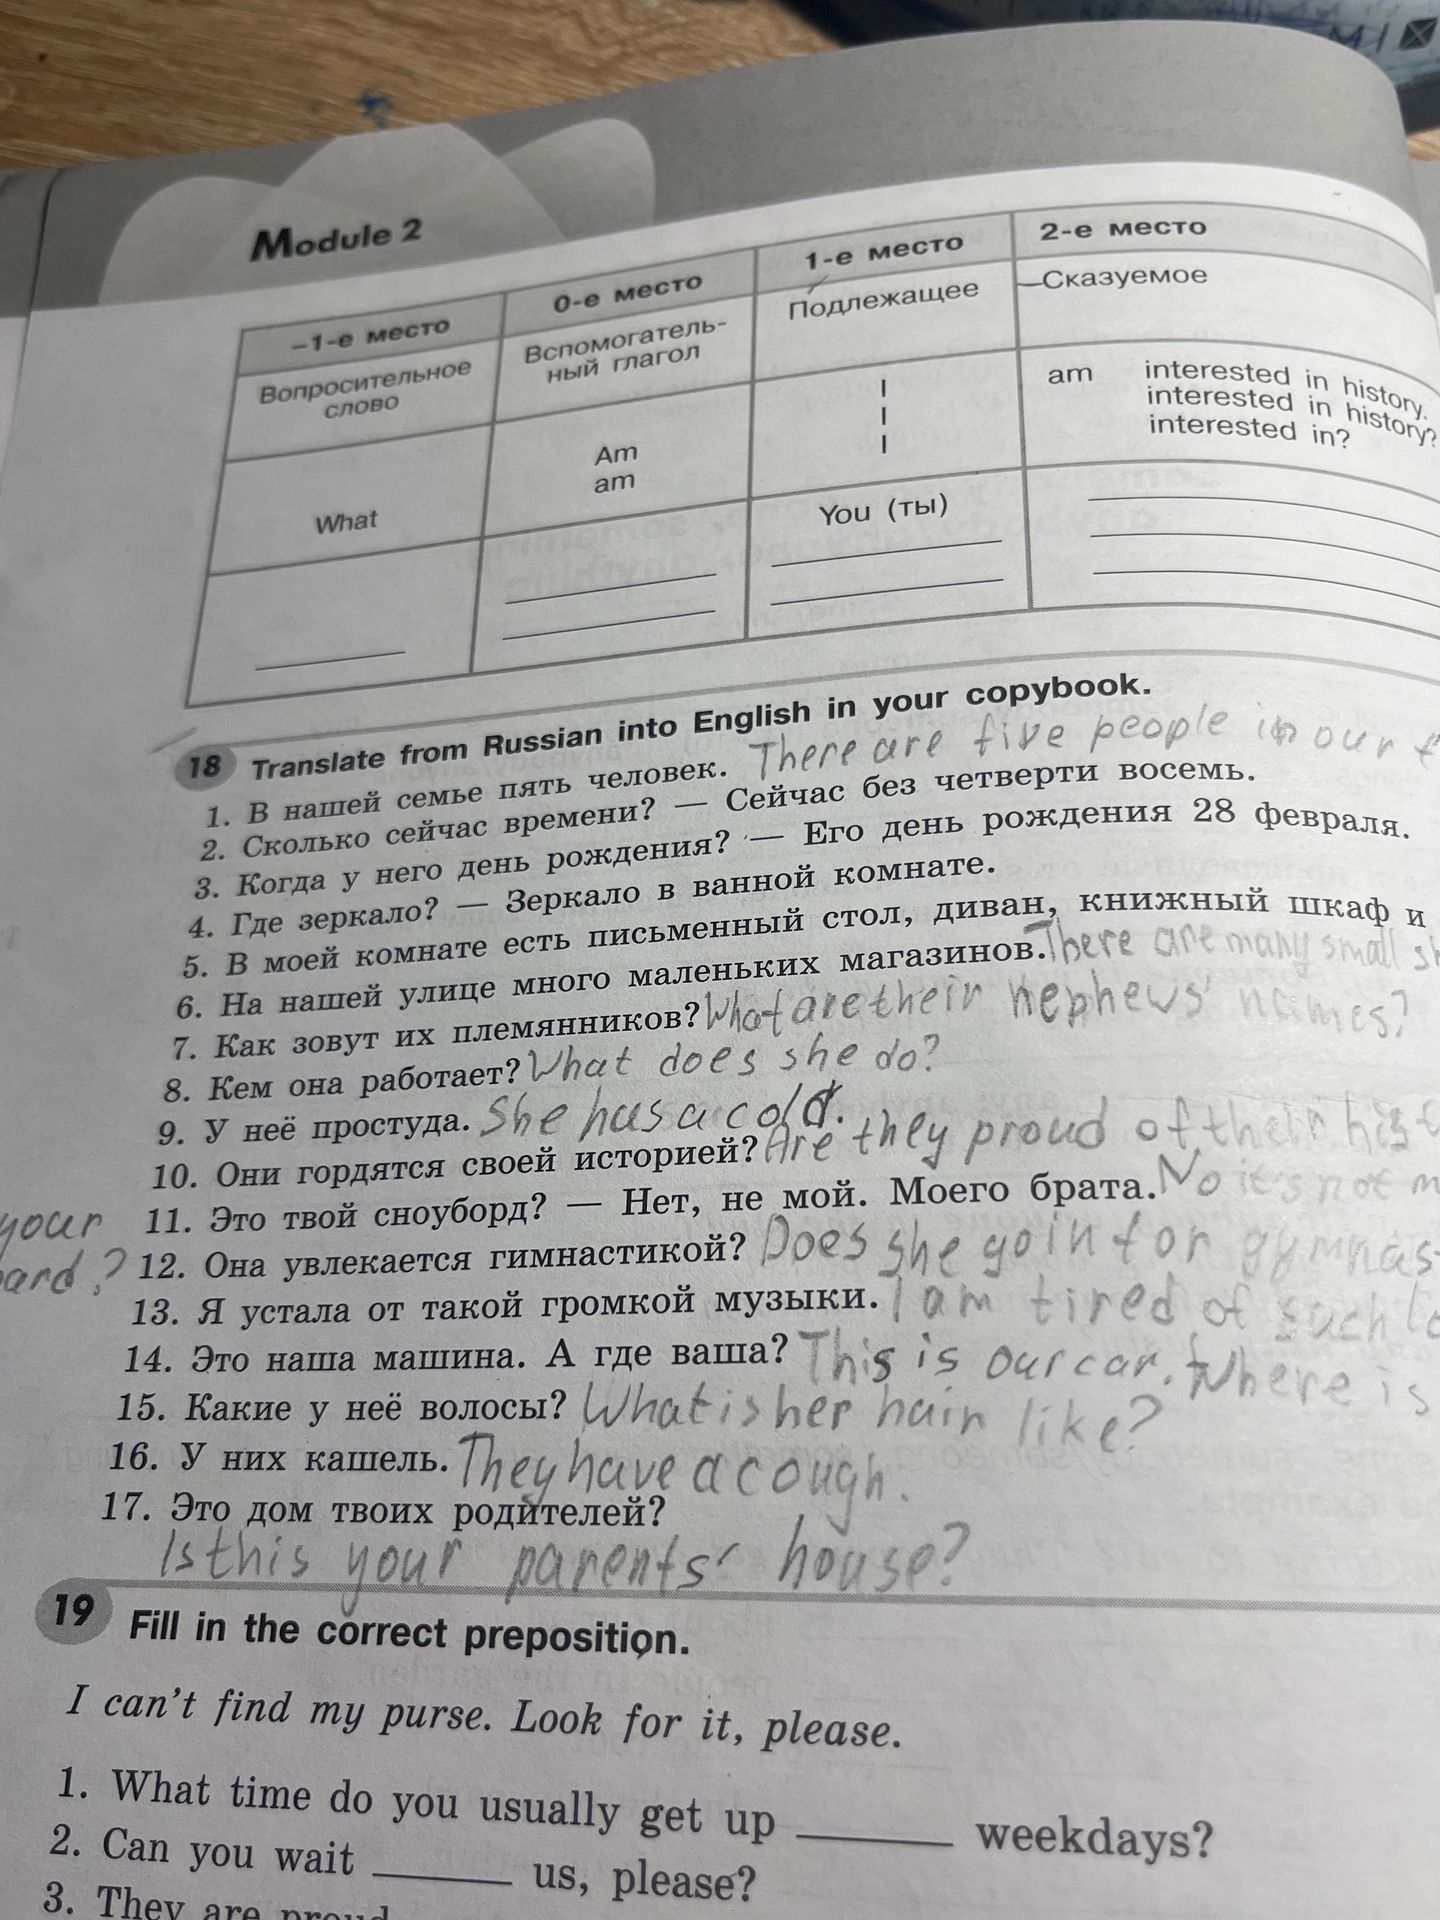 Module 2
–1-е место
0-е место
1-е место
2-е место
Вопросительное
слово
Вспомогатель-
ный глагол
Подлежащее
Сказуемое
What
Am
am
I
I
I
am interested in history.
interested in history?
interested in?
You (ты)
18 Translate from Russian into English in your copybook.
1. В нашей семье пять человек. There are five people in our f
2. Сколько сейчас времени? — Сейчас без четверти восемь.
3. Когда у него день рождения? — Его день рождения 28 февраля.
4. Где зеркало? — Зеркало в ванной комнате.
5. В моей комнате есть письменный стол, диван, книжный шкаф и
6. На нашей улице много маленьких магазинов. There are many small sh
7. Как зовут их племянников? What are their nephews' names?
8. Кем она работает? What does she do?
9. У неё простуда. She has a cold.
10. Они гордятся своей историей? Are they proud of their hist
your 11. Это твой сноуборд? — Нет, не мой. Моего брата. No it's not m
ard? 12. Она увлекается гимнастикой? Does she go in for gymnas
13. Я устала от такой громкой музыки. I am tired of such lo
14. Это наша машина. А где ваша? This is our car. Where is
15. Какие у неё волосы? What is her hair like?
16. У них кашель. They have a cough.
17. Это дом твоих родителей?
Is this your parents' house?
19 Fill in the correct preposition.
I can't find my purse. Look for it, please.
1. What time do you usually get up ______ weekdays?
2. Can you wait ______ us, please?
3. They are proud